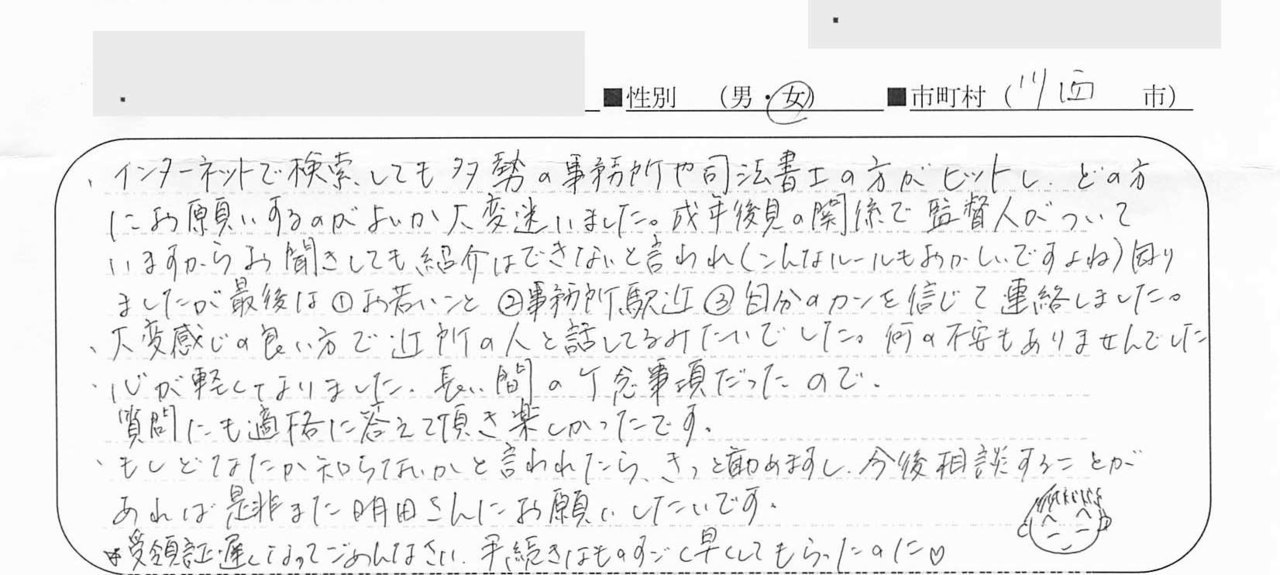 ■性別 （男・女） ■市町村（川西 市）
、インターネットで検索しても多勢の事務所や司法書士の方がヒットし、どの方
にお願いするのがよいか大変迷いました。成年後見の関係で監督人がついて
いますからお聞きしても紹介はできないと言われ（こんなルールもおかしいですよね）困り
ましたが最後は①お若いこと②事務所駅近③自分のカンを信じて連絡しました。
、大変感じの良い方で近所の人と話してるみたいでした。何の不安もありませんでした
・心が軽くなりました、長い間のケ念事項だったので、
質問にも適格に答えて頂き楽しかったです。
、もしどなたか知らないかと言われたら、きっと勧めますし、今後相談することが
あれば是非また明田さんにお願いしたいです。
*受領証遅くなってごめんなさい、手続きはものすごく早くしてもらったのに♡